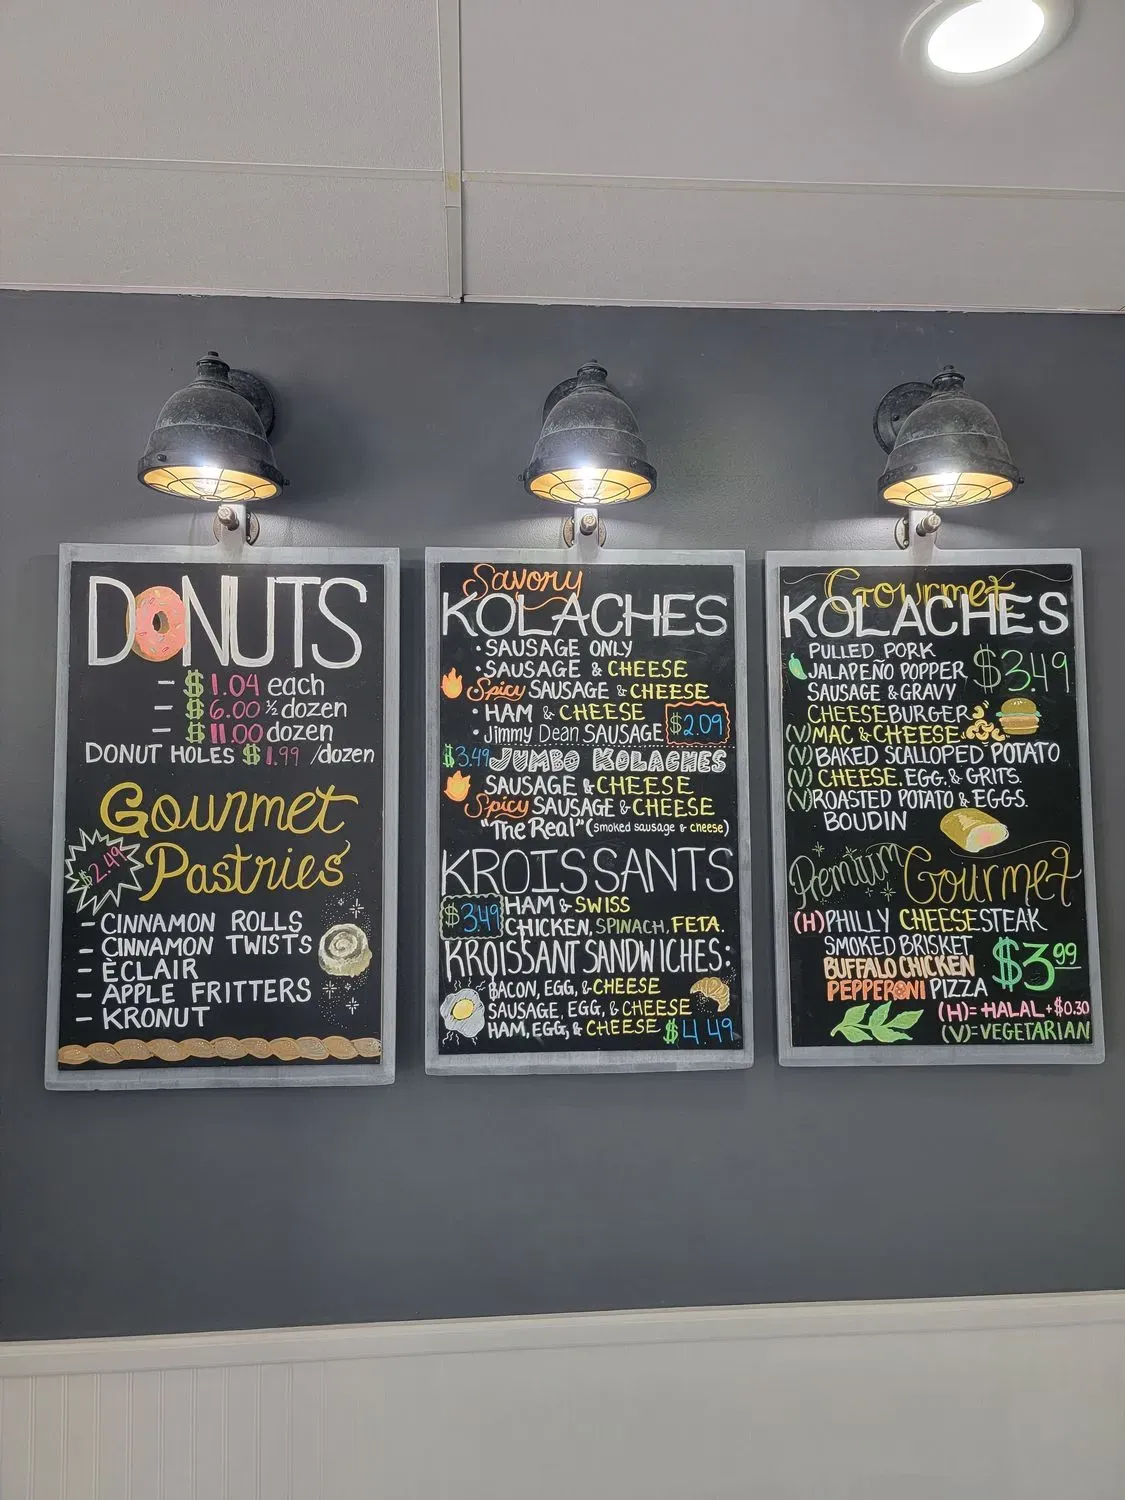 DONUTS
- $1.04 each
- $6.00 ½ dozen
- $11.00 dozen
DONUT HOLES $1.99 /dozen
Gourmet
Pastries
$2.49
- CINNAMON ROLLS
- CINNAMON TWISTS
- ÈCLAIR
- APPLE FRITTERS
- KRONUT
Savory
KOLACHES
• SAUSAGE ONLY
• SAUSAGE & CHEESE
Spicy SAUSAGE & CHEESE
• HAM & CHEESE
• Jimmy Dean SAUSAGE $2.09
$3.49 JUMBO KOLACHES
SAUSAGE & CHEESE
Spicy SAUSAGE & CHEESE
"The Real" (smoked sausage & cheese)
KROISSANTS
$3.49 HAM & SWISS
CHICKEN, SPINACH, FETA.
KROISSANT SANDWICHES:
BACON, EGG, & CHEESE
SAUSAGE, EGG, & CHEESE
HAM, EGG, & CHEESE $4.49
Gourmet
KOLACHES
PULLED PORK
JALAPEÑO POPPER $3.49
SAUSAGE & GRAVY
CHEESEBURGER
(V) MAC & CHEESE
(V) BAKED SCALLOPED POTATO
(V) CHEESE, EGG, & GRITS.
(V) ROASTED POTATO & EGGS.
BOUDIN
Premium Gourmet
(H) PHILLY CHEESESTEAK
SMOKED BRISKET
BUFFALO CHICKEN $3.99
PEPPERONI PIZZA
(H)= HALAL +$0.30
(V)= VEGETARIAN